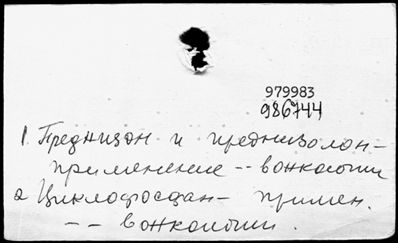 979983
986744
1. Преднизон и преднизолон –
применение -- в онкологии
2 Циклофосфан – примен.
-- в онкологии.